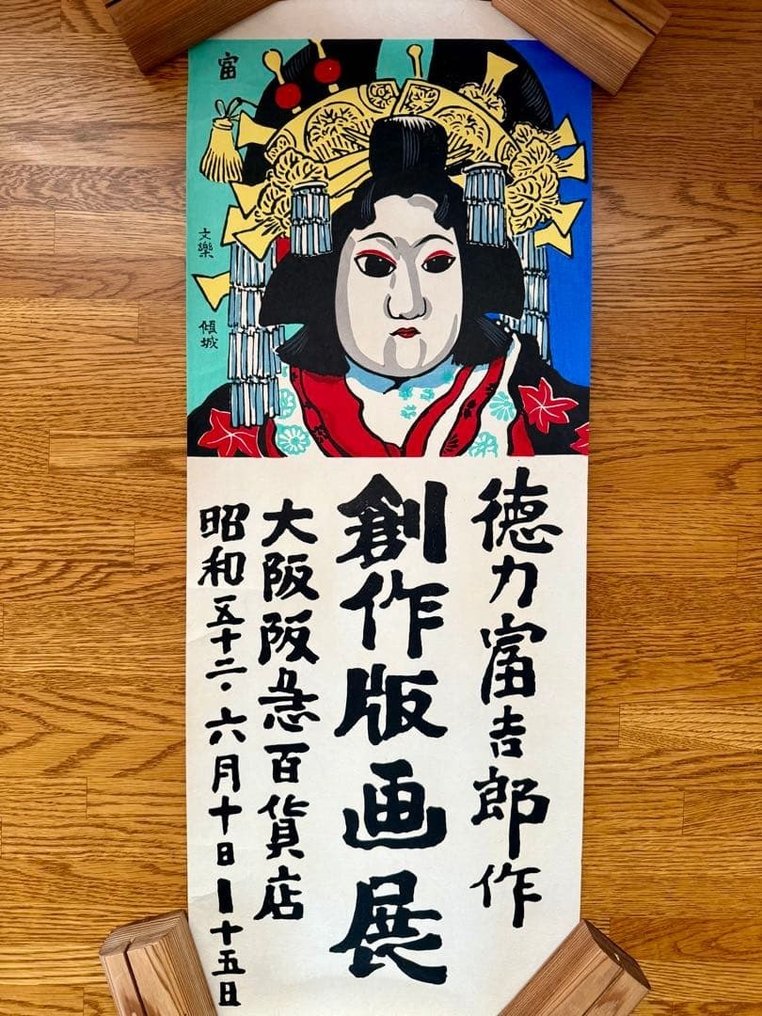 富
文樂
傾城
徳力富吉郎作
創作版画展
大阪阪急百貨店
昭和五十二・六月十日ー十五日